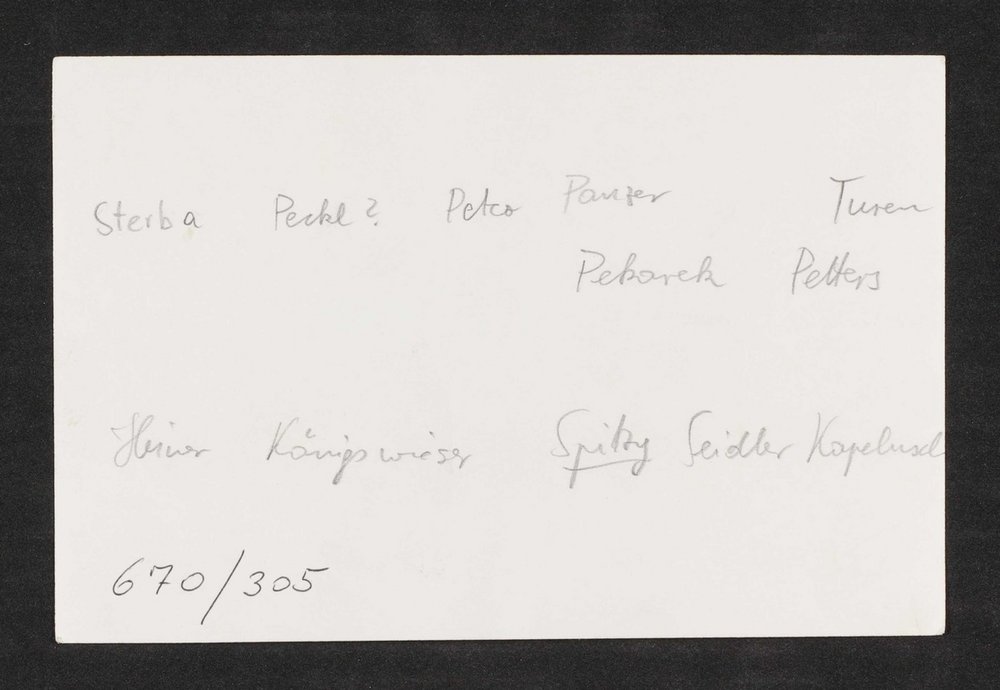 Sterba Peckl? Petco Panzer Turen
Pekarek Petters
Heiner Königswieser Spitzy Seidler Kapelusch
670/305